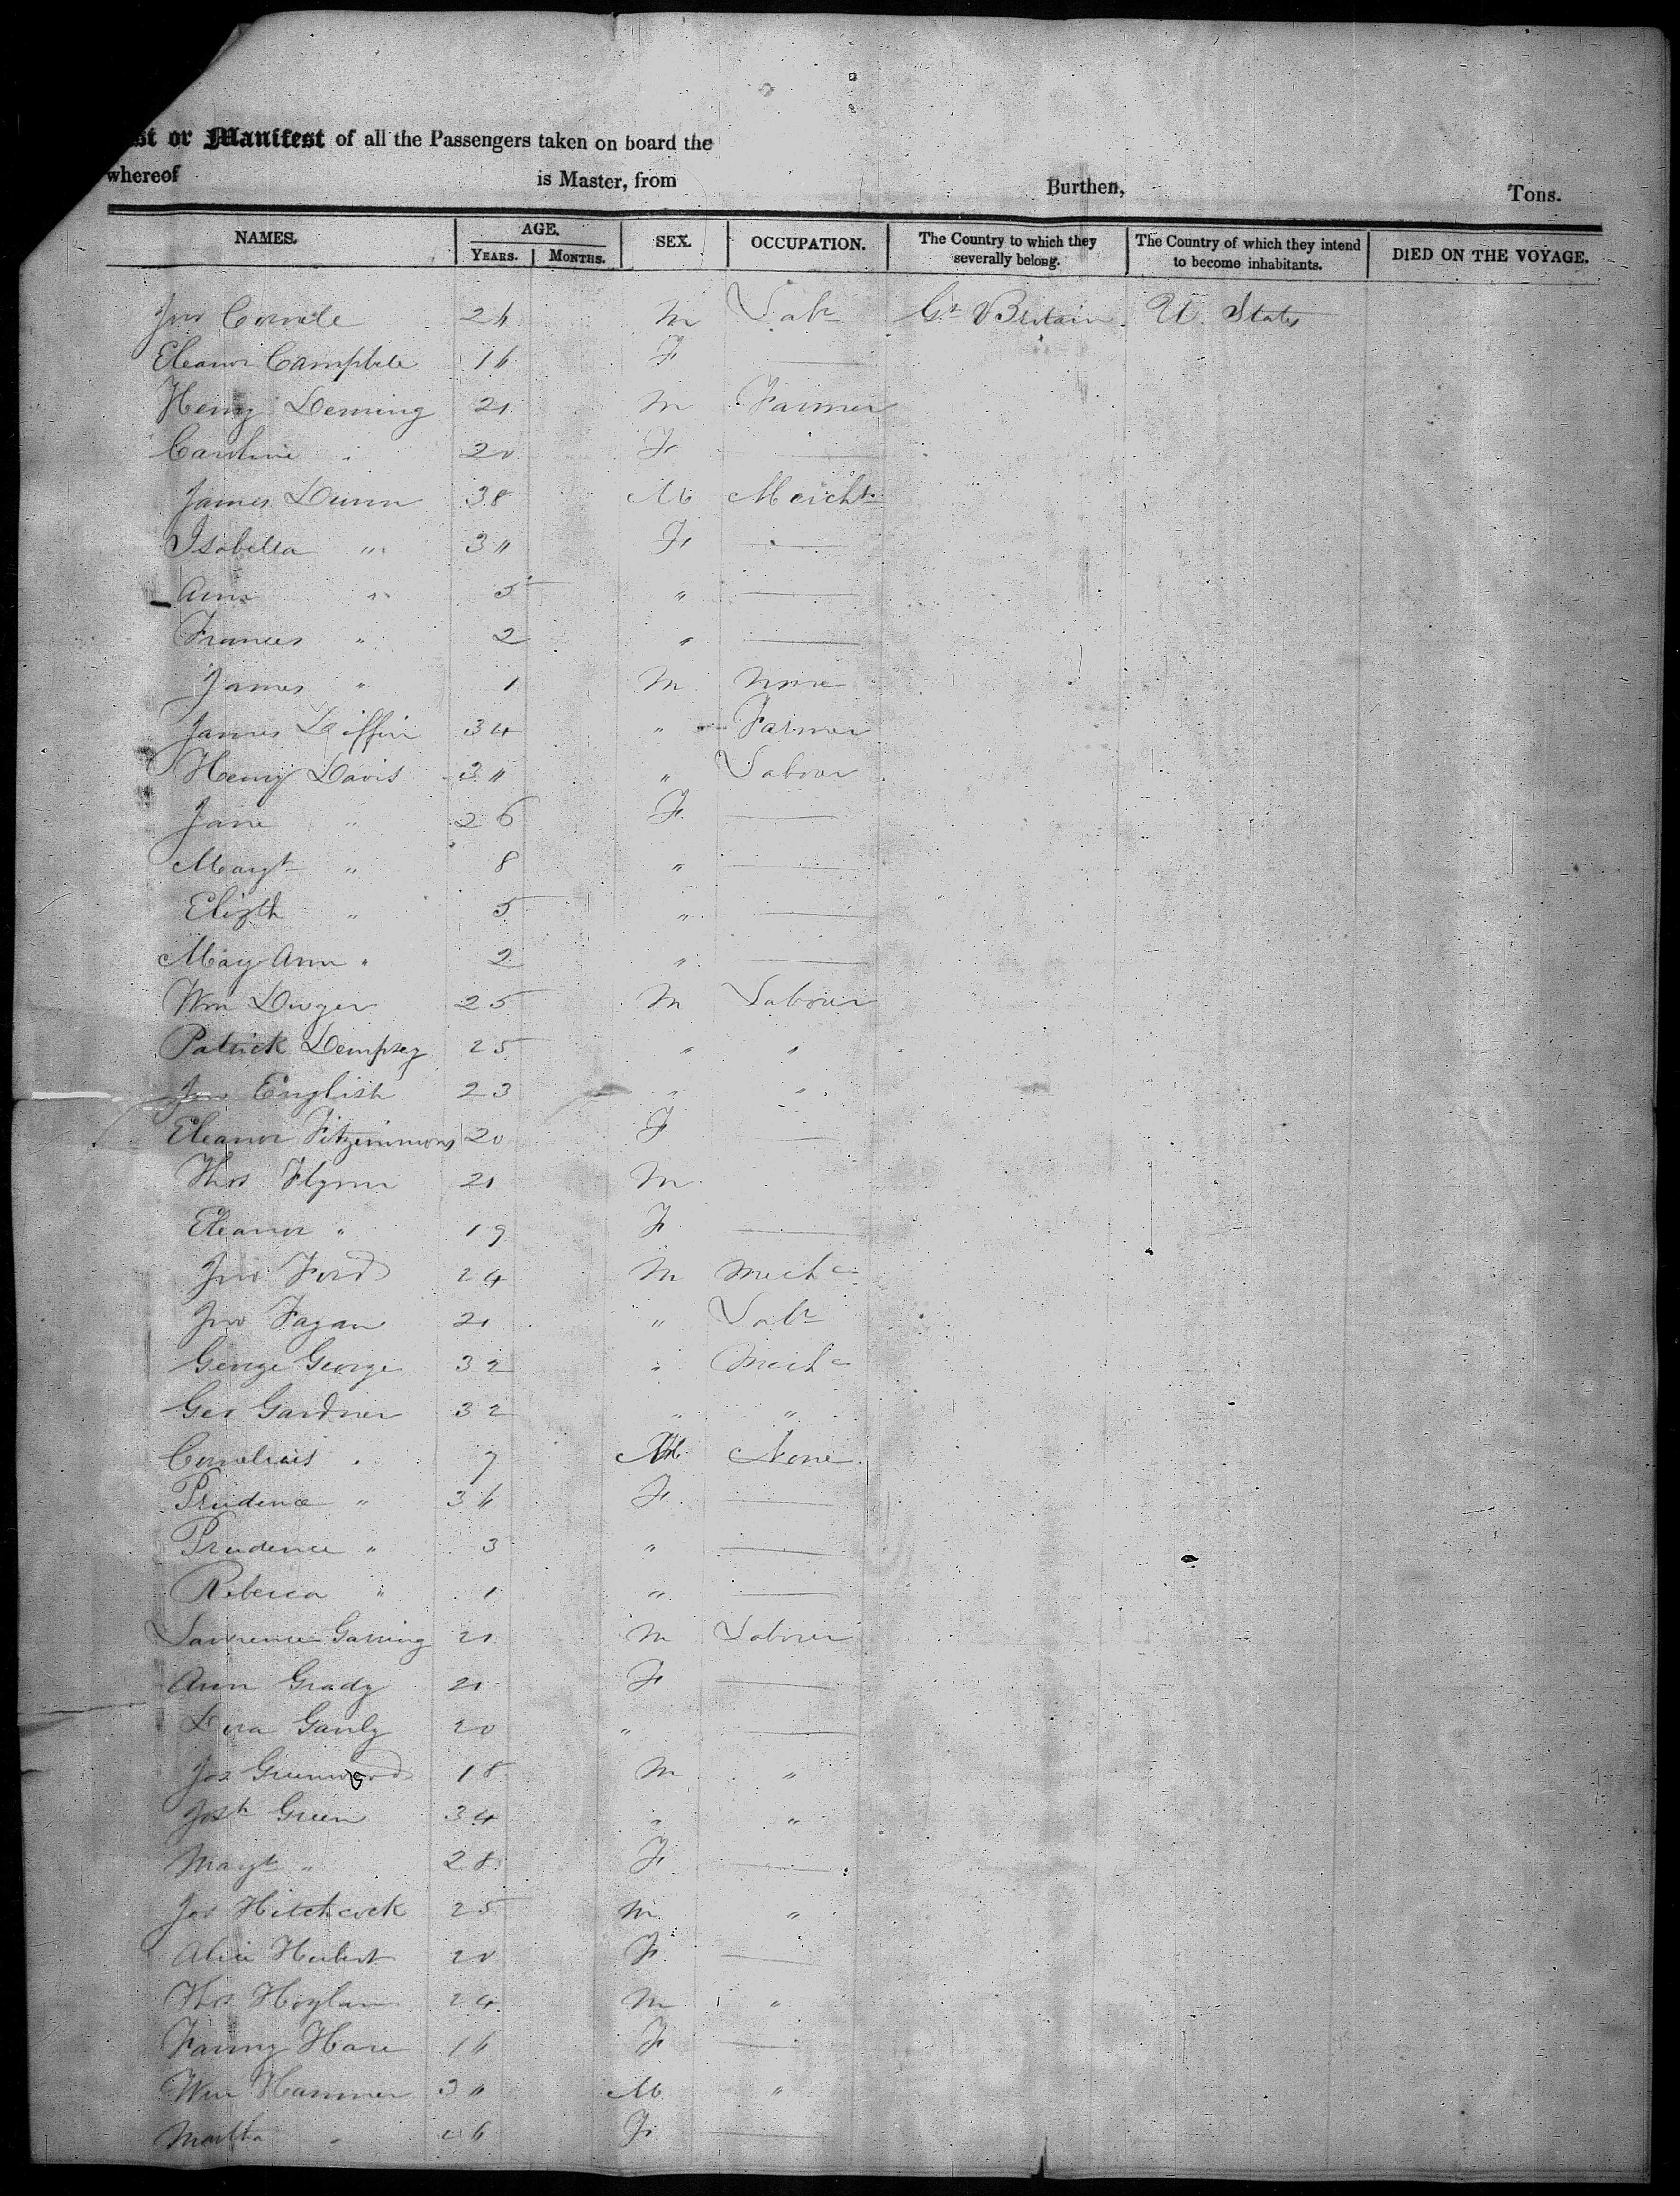 st or Manifest of all the Passengers taken on board the
whereof is Master, from Burthen, Tons.
NAMES. AGE. YEARS. MONTHS. SEX. OCCUPATION. The Country to which they severally belong. The Country of which they intend to become inhabitants. DIED ON THE VOYAGE.
Jno 26 M Labr Gt Britain U. States
Eleanor Campbele 16 F —
Henry Deming 21 M Farmer
Caroline " 20 F —
James Dunn 38 M Mercht
Isabella " 30 F —
Ann " 5 " —
Frances " 2 " —
James " 1 M None
James Diffin 34 " Farmer
Henry Davis 30 " Labour
Jane " 26 F —
Margt " 8 " —
Elizth " 5 " —
Mary Ann " 2 " —
Wm Dwyer 25 M Labour
Patrick Dempsey 25 " "
Jno English 23 " "
Eleanor Fitzsimmons 20 F —
Thos Flynn 21 M
Eleanor " 19 F —
Jno Ford 24 M Mechc
Jno Fagan 21 " Labr
George George 32 " Mechc
Geo Gardner 32 " "
Cornelius " 7 M None
Prudence " 36 F —
Prudence " 3 " —
Rebecca " 1 " —
Lawrence 21 M Labour
Ann Grady 21 F —
Dora Ganly 20 " —
Jos Greenwood 18 M "
Josh Green 34 " "
Margt " 28 F —
Jos Hitchcock 25 M "
Alice 20 F —
Thos Hoylan 24 M "
Fanny Hare 16 F —
Wm Hammer 30 M "
Martha " 26 F —